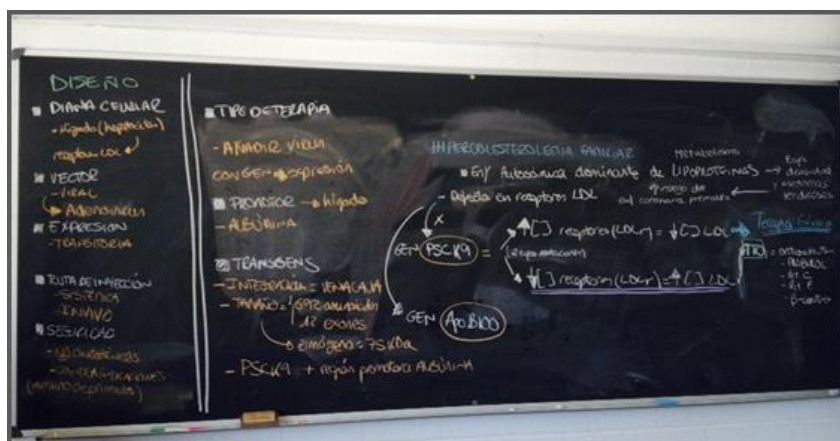 DISEÑO
■ DIANA CELULAR
- Hígado (hepatocitos)
receptores LDL
■ VECTOR
- VIRAL
→ Adenovirus
■ EXPRESIÓN
- TRANSITORIA
■ RUTA DE INYECCIÓN
- SISTÉMICA
- IN VIVO
■ SEGURIDAD
■ TIPO DE TERAPIA
- AÑADIR VIRUS
CON GEN → expresión
■ PROMOTOR → hígado
- ALBÚMINA
■ TRANSGENS
- TAMAÑO = 692 aminoácidos
12 exones
zimógeno = 75 KDa
- PSCK9 + región promotora ALBÚMINA
HIPERCOLESTEROLEMIA FAMILIAR
■ Enf Autosómica dominante de LIPOPROTEINAS
Metabolismo
- Defecto en receptores LDL
riesgo de
enf coronaria prematura
GEN PSCK9 =
↑[ ] receptores (LDLr) = ↓[ ] LDL → Terapia Génica
↓[ ] receptores (LDLr) = ↑[ ] LDL
GEN ApoB100
- PROBUCOL
- Vit C
- Vit E